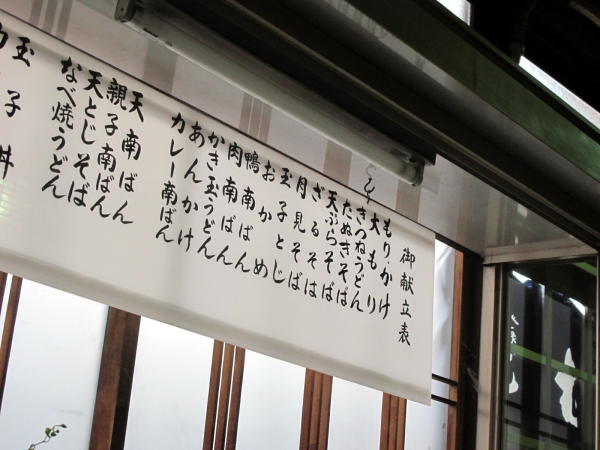 御献立表
もり、かけ
大もり
きつねうどん
たぬきそば
天ぷらそば
ざるそば
月見そば
玉子とじ
おかめ
鴨南ばん
肉南ばん
かき玉うどん
あんかけ
カレー南ばん
天南ばん
親子南ばん
天とじそば
なべ焼うどん
玉子丼